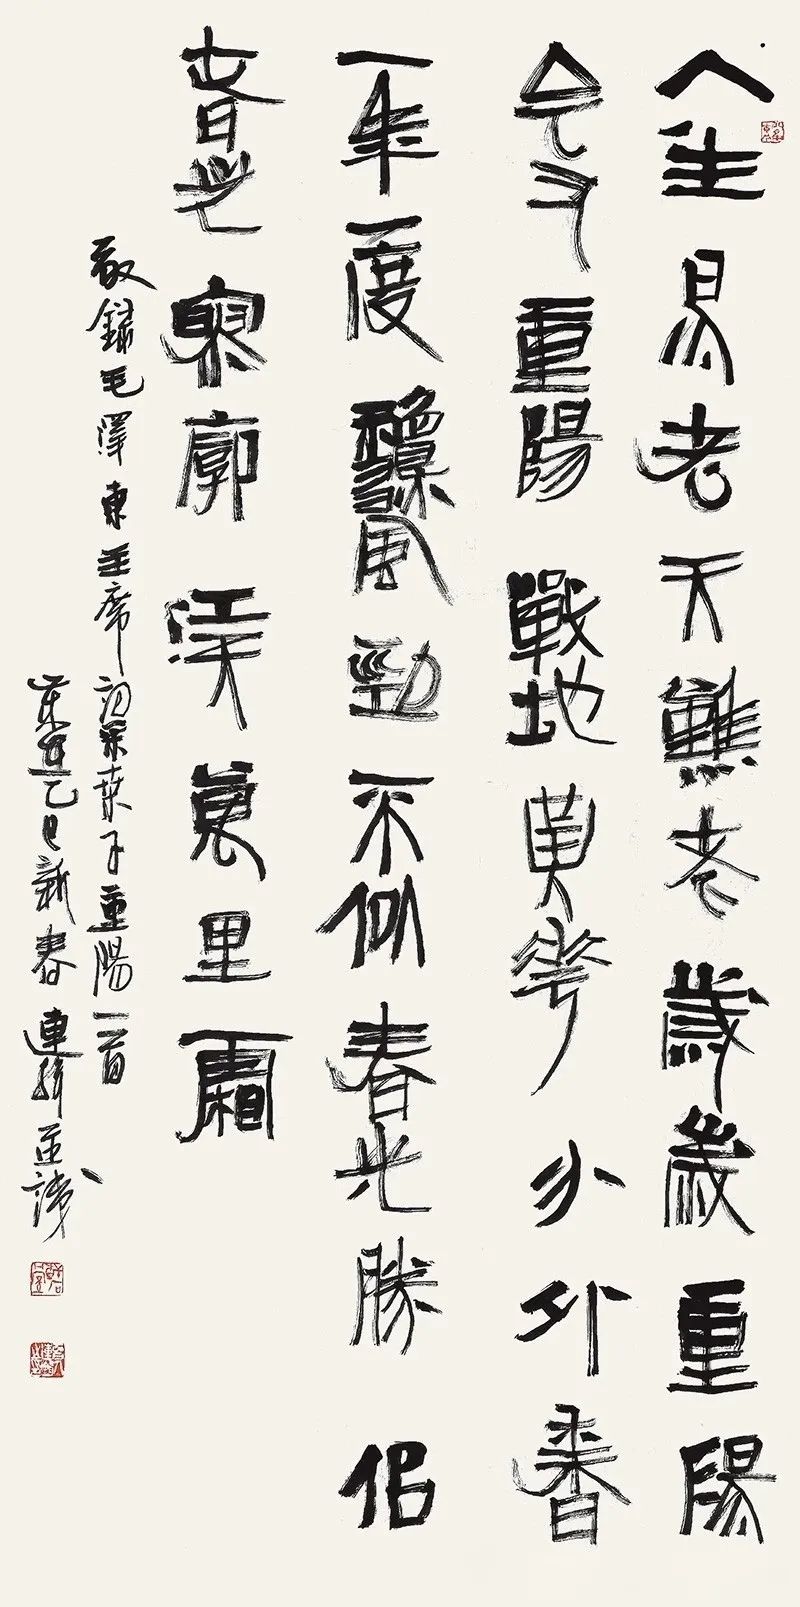 人生易老天難老歲歲重陽
今又重陽戰地黃花分外香
一年一度龝風勁不似春光勝佀
春光寥廓江天萬里霜
敬錄毛澤東主席詞采桑子重陽一首
乙巳新春連輯並識